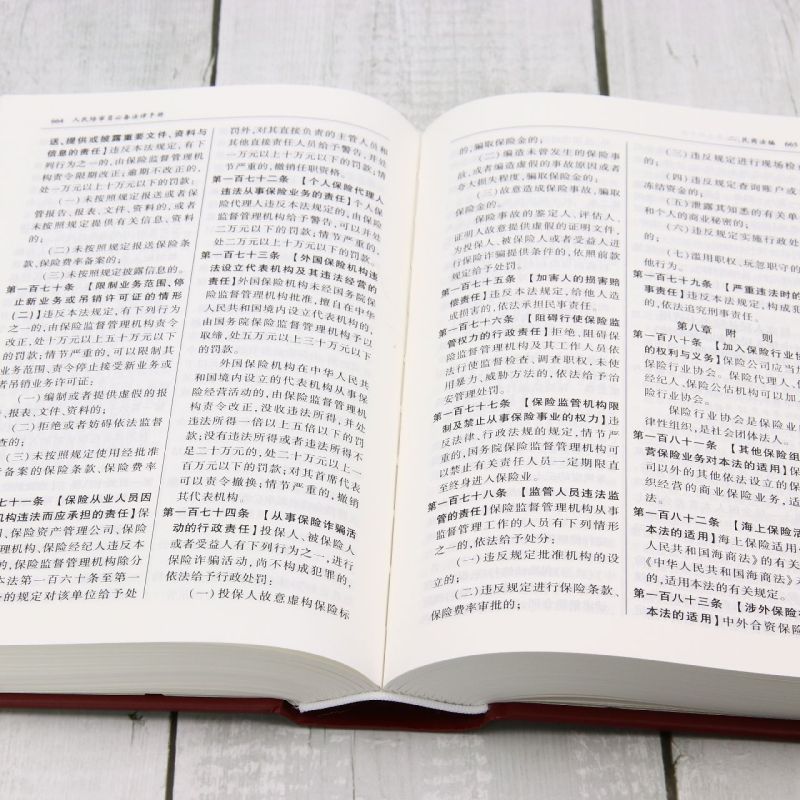 664 人民陪审员必备法律手册
送、提供或披露重要文件、资料与
信息的责任】违反本法规定,有下
列行为之一的,由保险监督管理机
构责令限期改正;逾期不改正的,
处一万元以上十万元以下的罚款:
(一)未按照规定报送或者
保管报告、报表、文件、资料的,或者
未按照规定提供有关信息、资料
的;
(二)未按照规定报送保险条
款、保险费率备案的;
(三)未按照规定披露信息的。
第一百七十条 【限制业务范围、停
止新业务或吊销许可证的情形
(二)】违反本法规定,有下列行为
之一的,由保险监督管理机构责令
改正,处十万元以上五十万元以下
的罚款;情节严重的,可以限制其
业务范围、责令停止接受新业务或
者吊销业务许可证:
(一)编制或者提供虚假的报
告、报表、文件、资料的;
(二)拒绝或者妨碍依法监督
检查的;
(三)未按照规定使用经批准
或者备案的保险条款、保险费率
七十一条 【保险从业人员因
机构违法而应承担的责任】保险
司、保险资产管理公司、保险
代理机构、保险经纪人违反本
的,保险监督管理机构除分
本法第一百六十条至第一
条的规定对该单位给予处
罚外,对其直接负责的主管人员和
其他直接责任人员给予警告,并处
一万元以上十万元以下的罚款;情
节严重的,撤销任职资格。
第一百七十二条 【个人保险代理人
违法从事保险业务的责任】个人保
险代理人违反本法规定的,由保险
监督管理机构给予警告,可以并处
二万元以下的罚款;情节严重的,
处二万元以上十万元以下的罚款。
第一百七十三条 【外国保险机构违
法设立代表机构及其违法经营的
责任】外国保险机构未经国务院保
险监督管理机构批准,擅自在中华
人民共和国境内设立代表机构的,
由国务院保险监督管理机构予以
取缔,处五万元以上三十万元以下
的罚款。
外国保险机构在中华人民共
和国境内设立的代表机构从事保
险经营活动的,由保险监督管理机
构责令改正,没收违法所得,并处
违法所得一倍以上五倍以下的罚
款;没有违法所得或者违法所得不
足二十万元的,处二十万元以上一
百万元以下的罚款;对其首席代表
可以责令撤换;情节严重的,撤销
其代表机构。
第一百七十四条 【从事保险诈骗活
动的行政责任】投保人、被保险人
或者受益人有下列行为之一,进行
保险诈骗活动,尚不构成犯罪的,
依法给予行政处罚:
(一)投保人故意虚构保险标
二、民商法编 665
的,骗取保险金的;
(二)编造未曾发生的保险事
故,或者编造虚假的事故原因或者
夸大损失程度,骗取保险金的;
(三)故意造成保险事故,骗取
保险金的。
保险事故的鉴定人、评估人、
证明人故意提供虚假的证明文件,
为投保人、被保险人或者受益人进
行保险诈骗提供条件的,依照前款
规定给予处罚。
第一百七十五条 【加害人的损害赔
偿责任】违反本法规定,给他人造
成损害的,依法承担民事责任。
第一百七十六条 【阻碍行使保险监
管权力的行政责任】拒绝、阻碍保
险监督管理机构及其工作人员依
法行使监督检查、调查职权,未使
用暴力、威胁方法的,依法给予治
安管理处罚。
第一百七十七条 【保险监管机构限
制及禁止从事保险事业的权力】违
反法律、行政法规的规定,情节严
重的,国务院保险监督管理机构可
以禁止有关责任人员一定期限直
至终身进入保险业。
第一百七十八条 【监管人员违法监
管的责任】保险监督管理机构从事
监督管理工作的人员有下列情形
之一的,依法给予处分:
(一)违反规定批准机构的设
立的;
(二)违反规定进行保险条款、
保险费率审批的;
(三)违反规定进行现场检
(四)违反规定查询账户或
冻结资金的;
(五)泄露其知悉的有关单
和个人的商业秘密的;
(六)违反规定实施行政处
的;
(七)滥用职权、玩忽职守的
他行为。
第一百七十九条 【严重违法时的
事责任】违反本法规定,构成犯
的,依法追究刑事责任。
第八章 附 则
第一百八十条 【加入保险行业协
的权利与义务】保险公司应当加
险行业协会。保险代理人、保
经纪人、保险公估机构可以加入
险行业协会。
保险行业协会是保险业
律性组织,是社会团体法人。
第一百八十一条 【其他保险组
营保险业务对本法的适用】
司以外的其他依法设立的保
组织经营的商业保险业务,适
法。
第一百八十二条 【海上保险活
本法的适用】海上保险适用
人民共和国海商法》的有关
《中华人民共和国海商法》
的,适用本法的有关规定。
第一百八十三条 【涉外保险
本法的适用】中外合资保险